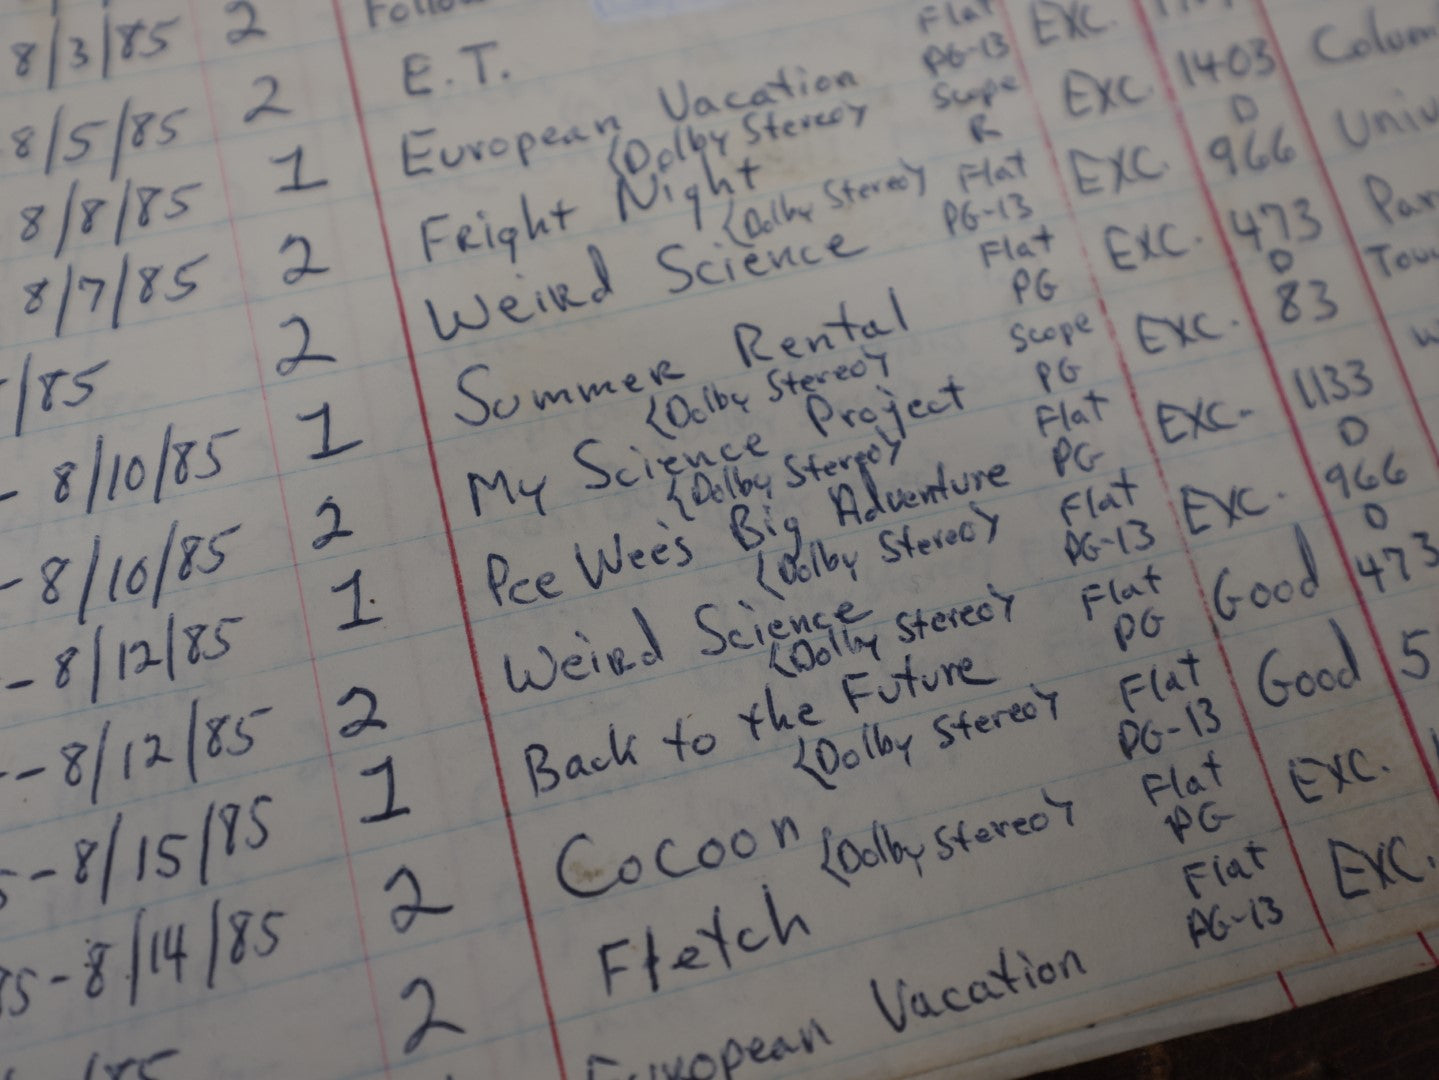 8/3/85 2
E.T. Flat EXC.
8/5/85 2 European Vacation PG-13 EXC. 1403 Colum
{Dolby Stereo} Scope D
8/8/85 1 Fright Night R EXC. 966 Univ
{Dolby Stereo} Flat
8/7/85 2 Weird Science PG-13 EXC. 473 Par
Flat D
/85 2 Summer Rental PG EXC. 83 Tou
{Dolby Stereo} Scope
- 8/10/85 1 My Science Project PG EXC. 1133
{Dolby Stereo} Flat D
- 8/10/85 2 Pee Wee's Big Adventure PG EXC. 966
{Dolby Stereo} Flat D
- 8/12/85 1 Weird Science PG-13 Good 473
{Dolby Stereo} Flat
-- 8/12/85 2 Back to the Future PG Good 5
{Dolby Stereo} Flat
- 8/15/85 1 Cocoon PG-13 EXC.
{Dolby Stereo} Flat
5 - 8/14/85 2 Fletch PG EXC.
Flat
/85 2 European Vacation PG-13